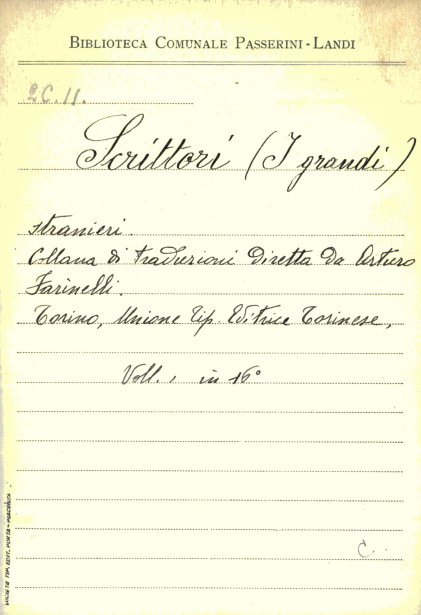 BIBLIOTECA COMUNALE PASSERINI-LANDI
2C.11.
Scrittori (I grandi)
stranieri.
Collana di traduzioni diretta da Arturo
Farinelli.
Torino, Unione Tip. Editrice Torinese,
Voll. , in 16°
C.